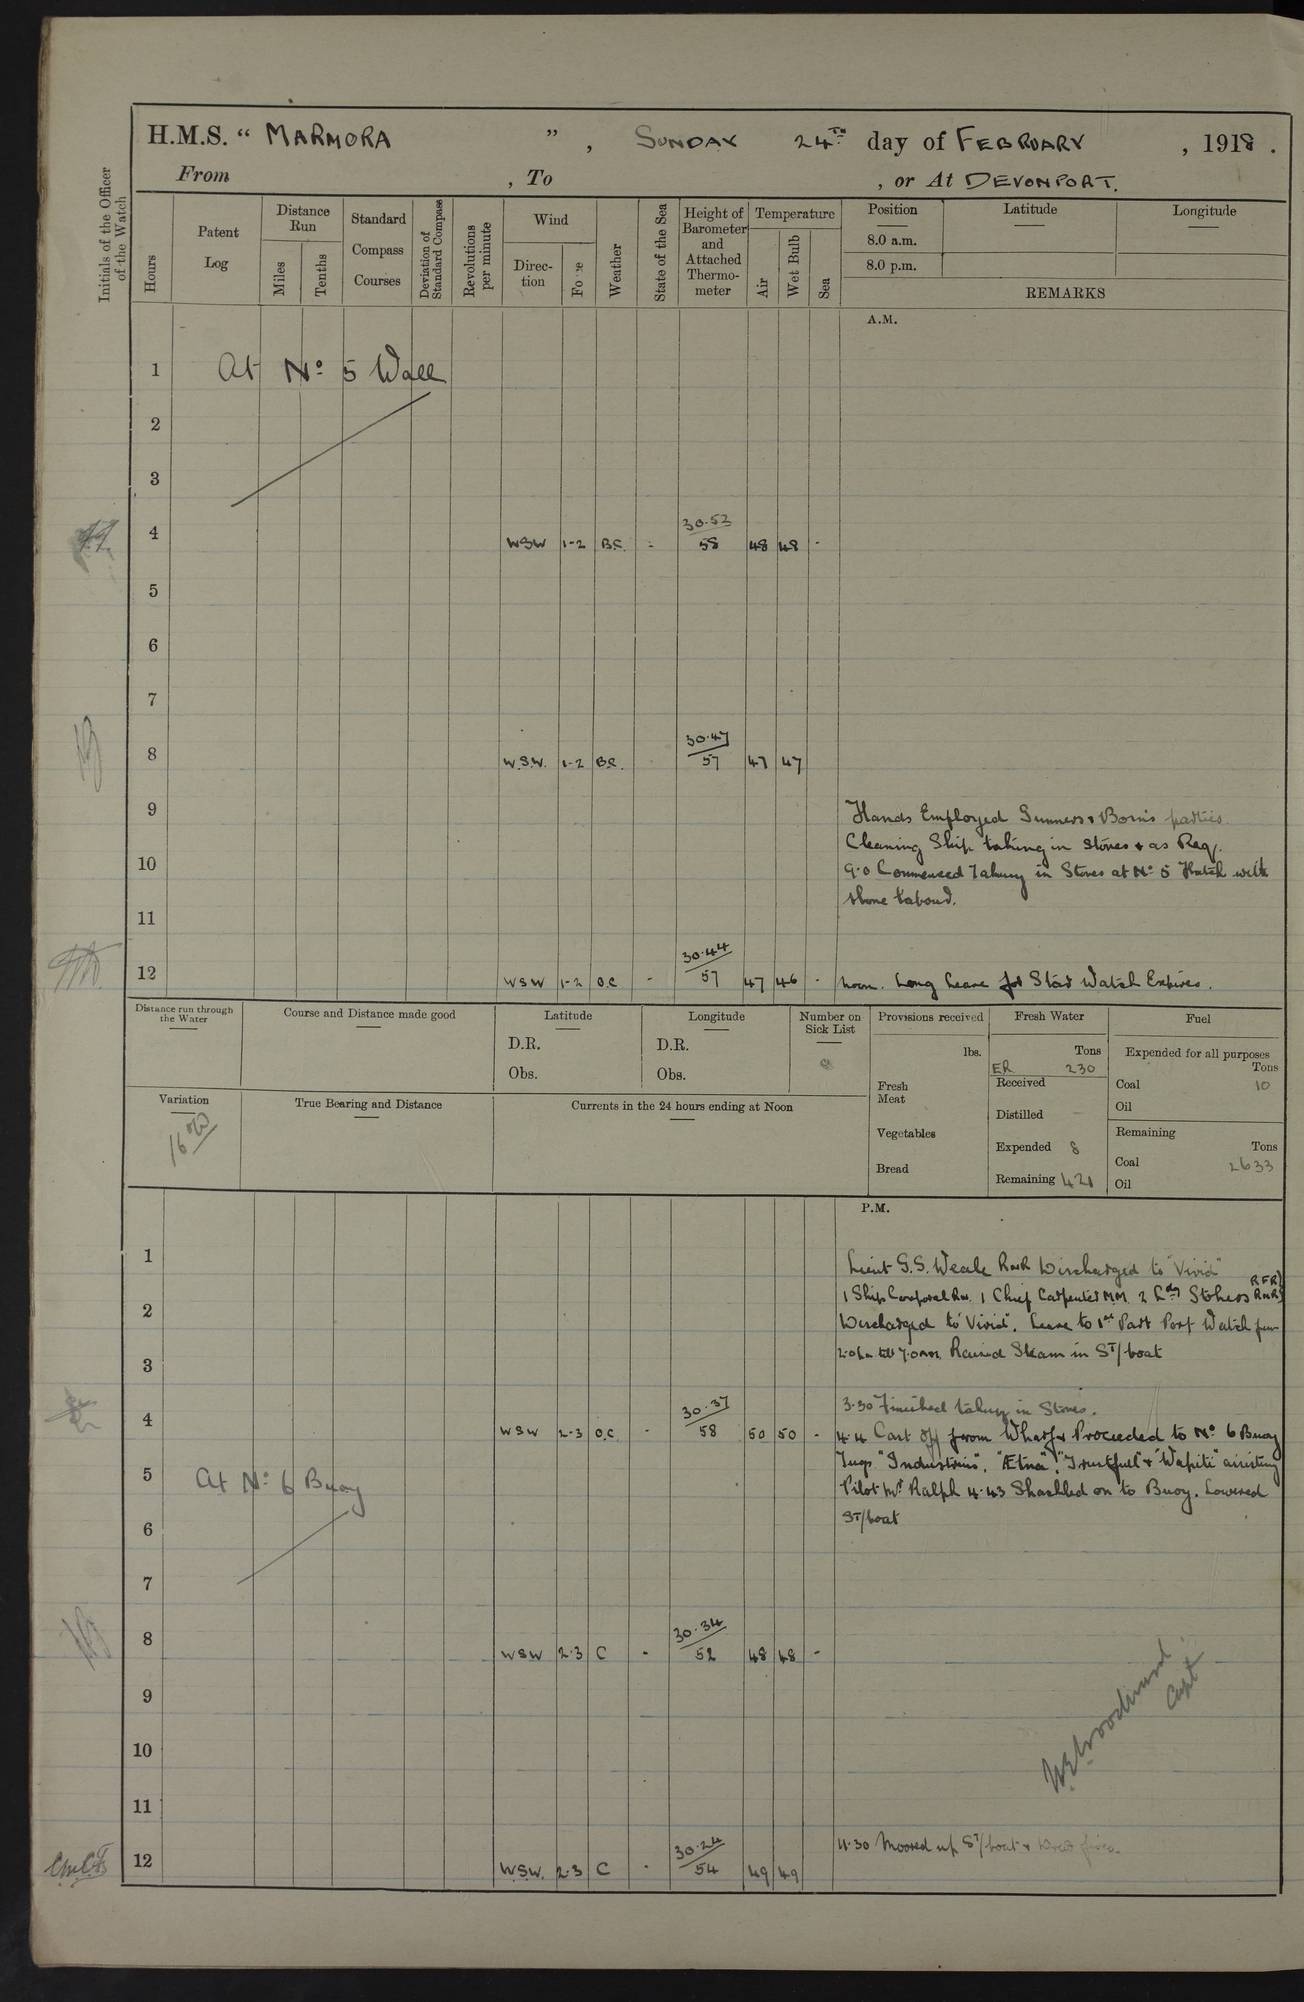 H.M.S. “ MARMORA ” , SUNDAY 24TH day of FEBRUARY , 1918 .
From , To , or At DEVONPORT.
Initials of the Officer of the Watch
Hours
Patent Log
Distance Run
Miles
Tenths
Standard Compass Courses
Deviation of Standard Compass
Revolutions per minute
Wind
Direction
Force
Weather
State of the Sea
Height of Barometer and Attached Thermometer
Temperature
Air
Wet Bulb
Sea
Position Latitude Longitude
8.0 a.m.
8.0 p.m.
REMARKS
A.M.
1 At No 5 Wall
2
3
4 WSW 1-2 B.C. - 30.53 58 48 48 -
5
6
7
8 W.S.W. 1-2 B.C. 30.47 57 47 47
9 Hands Employed Gunners & Bosns parties
Cleaning Ship taking in stores & as Req.
10 9.0 Commenced Taking in Stores at No 5 Hatch with
shore labour.
11
12 WSW 1-2 O.C - 30.44 57 47 46 - Noon. Long Leave for Star Watch Expires.
Distance run through the Water
Course and Distance made good
Latitude
D.R.
Obs.
Longitude
D.R.
Obs.
Number on Sick List
Provisions received
lbs.
Fresh Meat
Vegetables
Bread
Fresh Water
Tons
ER 230
Received
Distilled -
Expended 8
Remaining 421
Fuel
Expended for all purposes
Tons
Coal 10
Oil
Remaining
Tons
Coal 2633
Oil
Variation
16
True Bearing and Distance
Currents in the 24 hours ending at Noon
P.M.
1 Lieut G.S. Weale RNR Discharged to "Vivid"
1 Ships Corporal RN. 1 Chief Carpenter M.M. 2 Ldg Stokers RFR RNR
2 Discharged to "Vivid". Leave to 1st Part Port Watch from
3 2.0 pm till 7.0 AM. Raised Steam in ST/boat
3.30 Finished taking in Stores.
4 WSW 2-3 O.C. - 30.37 58 50 50 - 4.4 Cast off from Wharf & Proceeded to No 6 Buoy
Tugs "Industrious", "Ætna", "Trustful" & "Wapiti" assisting
5 At No 6 Buoy Pilot Mr Ralph 4.43 Shackled on to Buoy. Lowered
6 ST/boat
7
8 WSW 2-3 C - 30.34 52 48 48 -
9
10
W.E. Woodward
Capt
11
12 W.S.W. 2-3 C - 30.24 54 49 49 11.30 Moored up ST/boat & Drew fires.